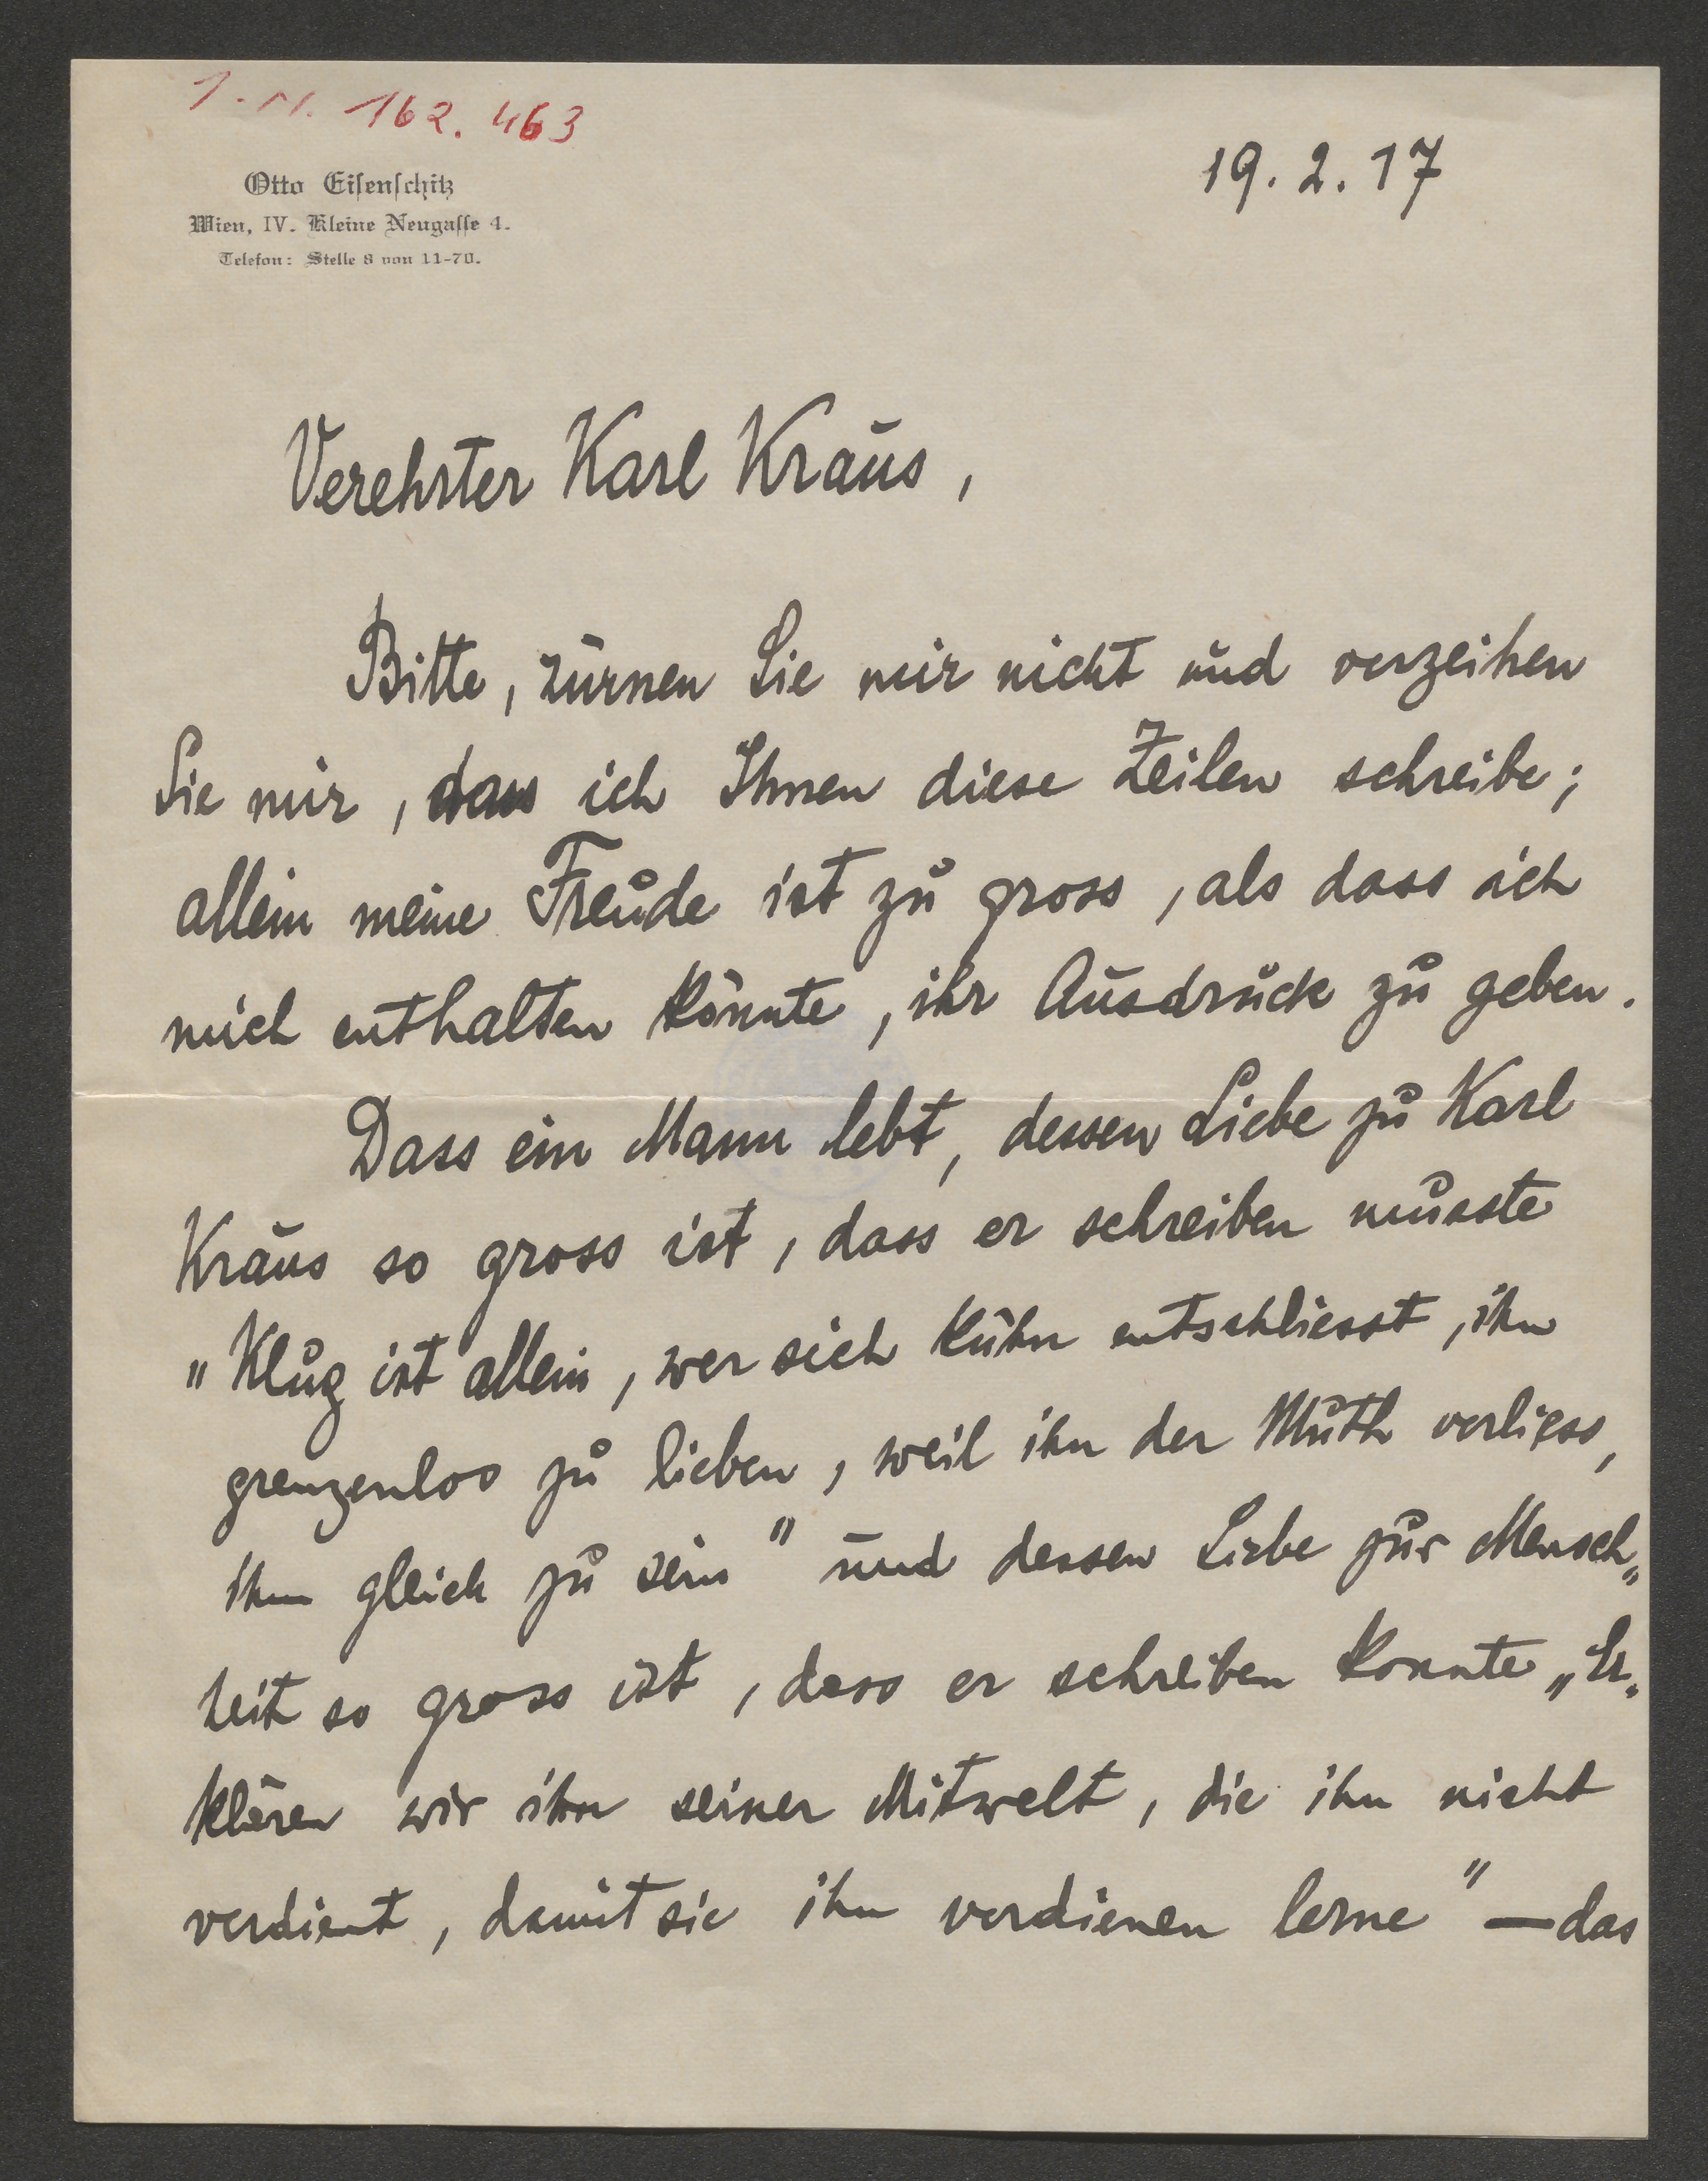 I.N. 162.463
Otto Eiſenſchitz
Wien, IV. Kleine Neugaſſe 4.
Telefon: Stelle 8 von 11-70.
19.2.17
Verehrter Karl Kraus,
Bitte, zürnen Sie mir nicht und verzeihen
Sie mir, dass ich Ihnen diese Zeilen schreibe;
allein meine Freude ist zu gross, als dass ich
mich enthalten könnte, ihr Ausdruck zu geben.
Dass ein Mann lebt, dessen Liebe zu Karl
Kraus so gross ist, dass er schreiben musste
„Klug ist allein, wer sich kühn entschliesst, ihn
grenzenlos zu lieben, weil ihn der Muth verliess,
ihm gleich zu sein" und dessen Liebe zur Mensch„
heit so gross ist, dass er schreiben konnte „Er„
klären wir ihn seiner Mitwelt, die ihn nicht
verdient, damit sie ihn verdienen lerne" — das